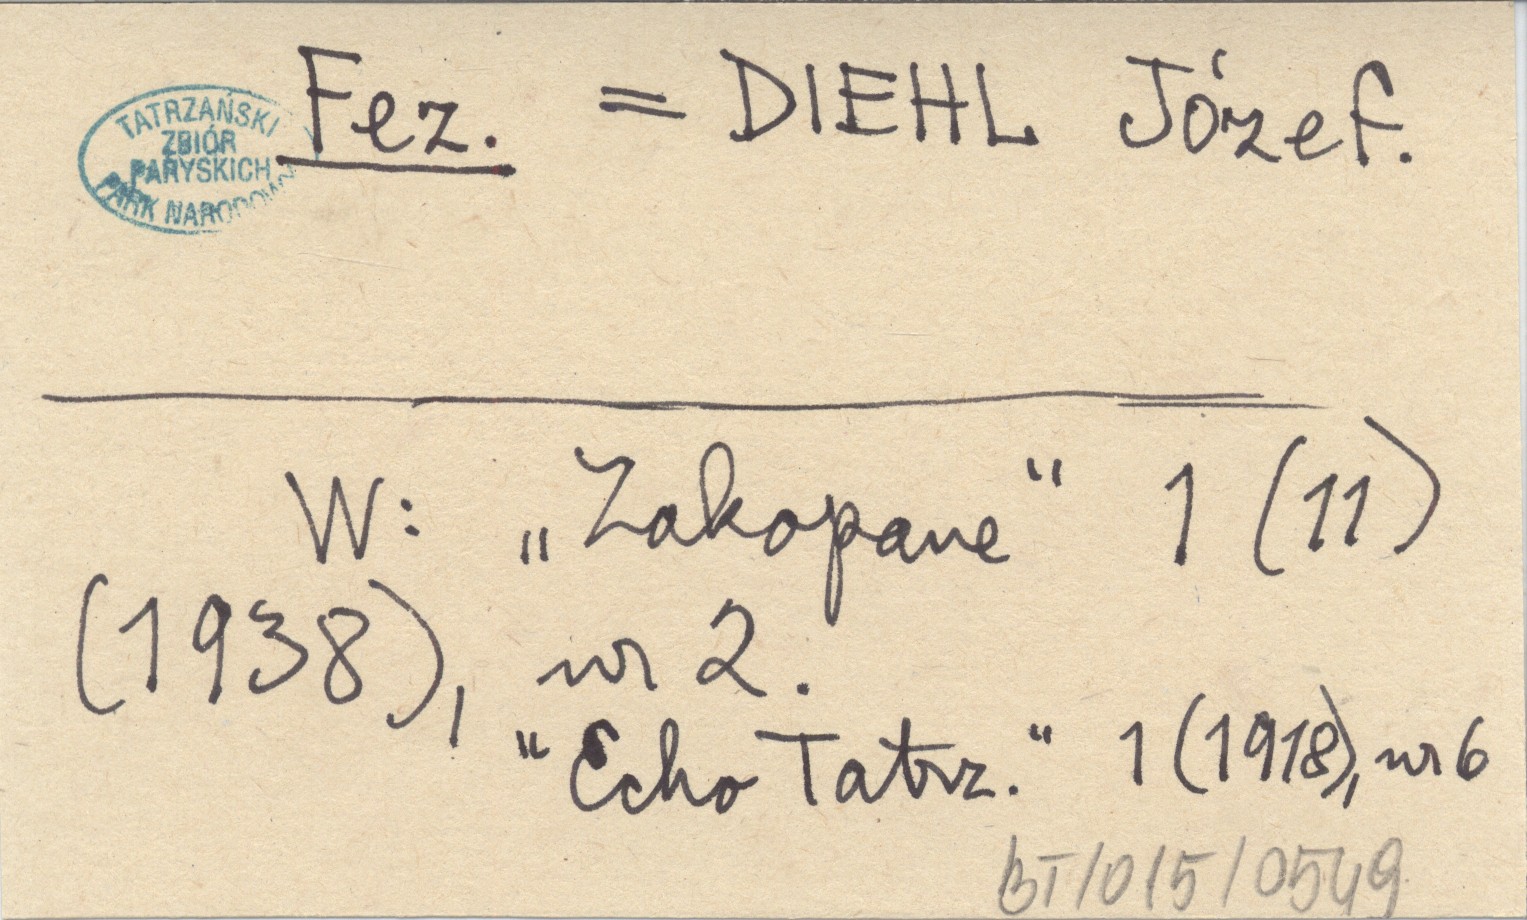 Fez. = DIEHL Józef.
TATRZAŃSKI
ZBIÓR
PARYSKICH
PARK NARODOWY
W: „Zakopane“ 1 (11)
(1938), nr 2.
"Echo Tatrz." 1 (1918), nr 6
BT/015/0549